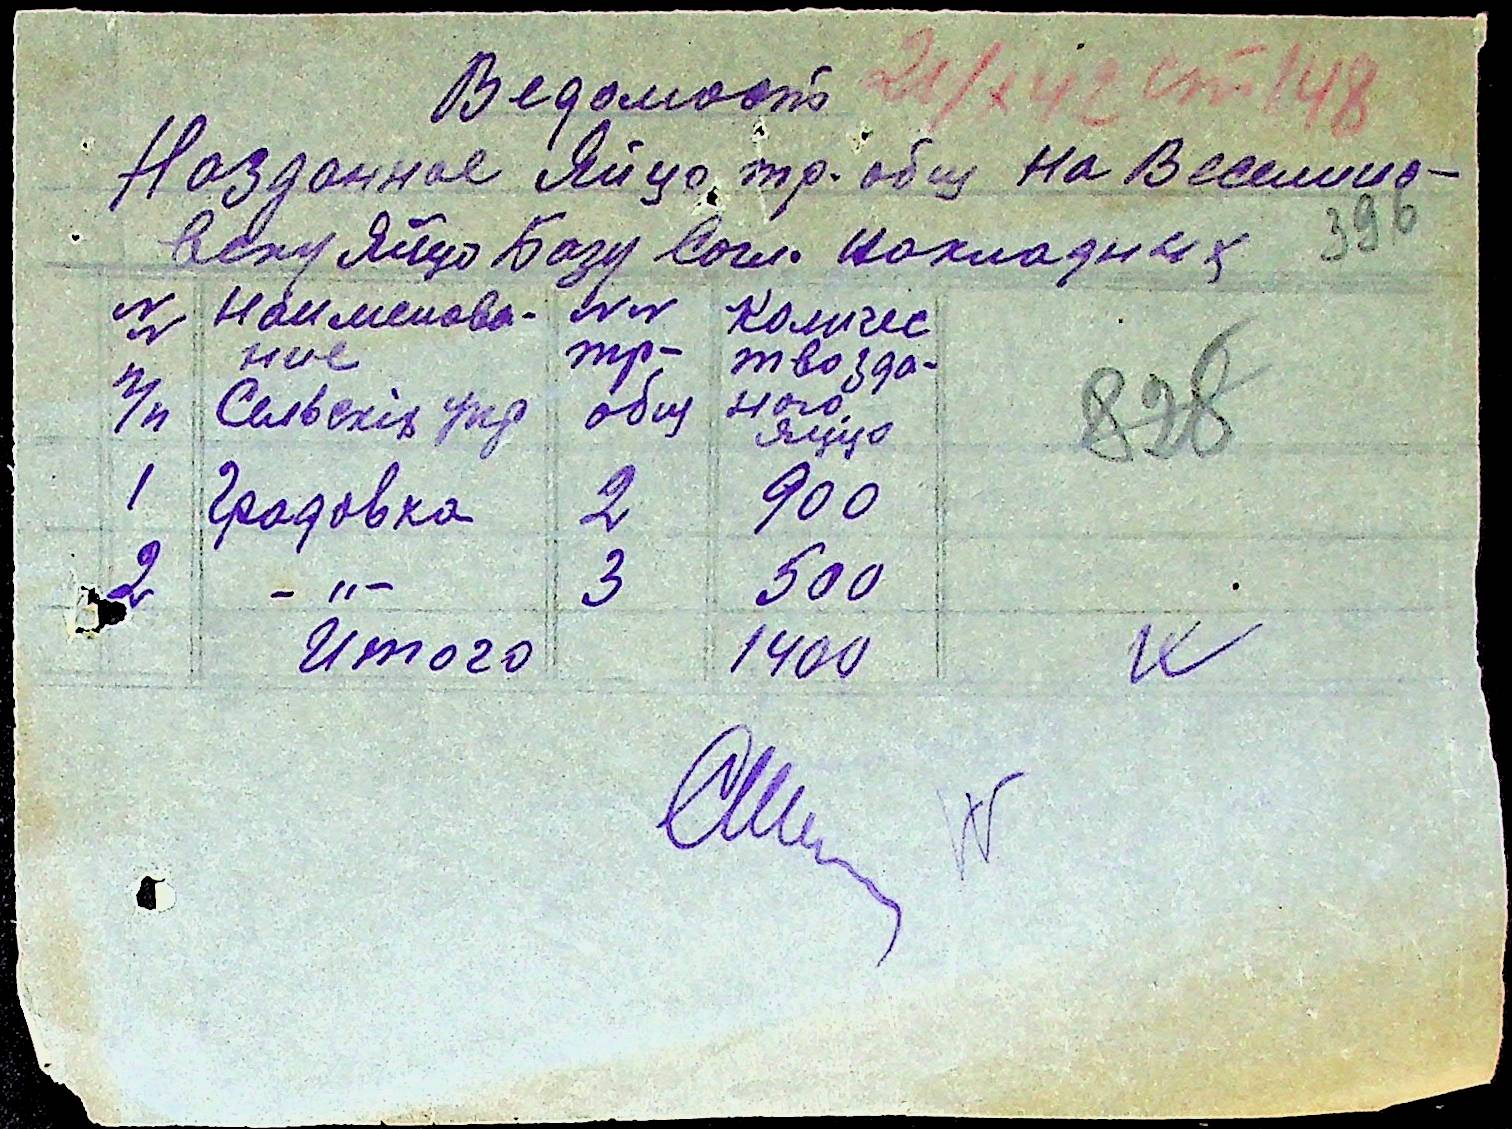 Ведомость 21/X 42 ст 148
Назданное Яйцо тр. общ на Веселино-
вску Яйцо Базу Согл. накладных
396
№№ п/п | Наименова-ние Сельских упр | №№ тр-общ | Количес твозда-ного Яйцо
828
1 Градовка 2 900
2 - " - 3 500
Итого 1400